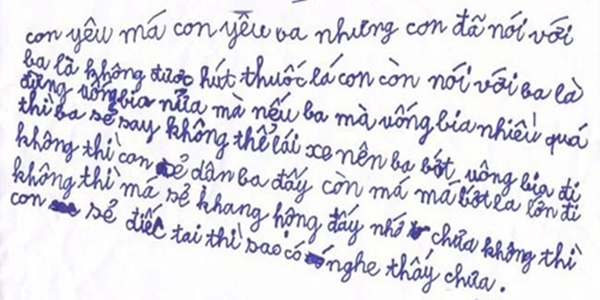 con yêu má con yêu ba nhưng con đã nói với
ba là không được hút thuốc lá con còn nói với ba là
đừng uống bia nữa mà nếu ba mà uống bia nhiều quá
thì ba sẽ say không thể lái xe nên ba bớt uống bia đi
không thì con sẻ dân ba đấy còn má má bớt la lớn đi
không thì má sẻ khang họng đấy nhớ chưa không thì
con sẻ điếc tai thì sao có nghe thấy chưa.